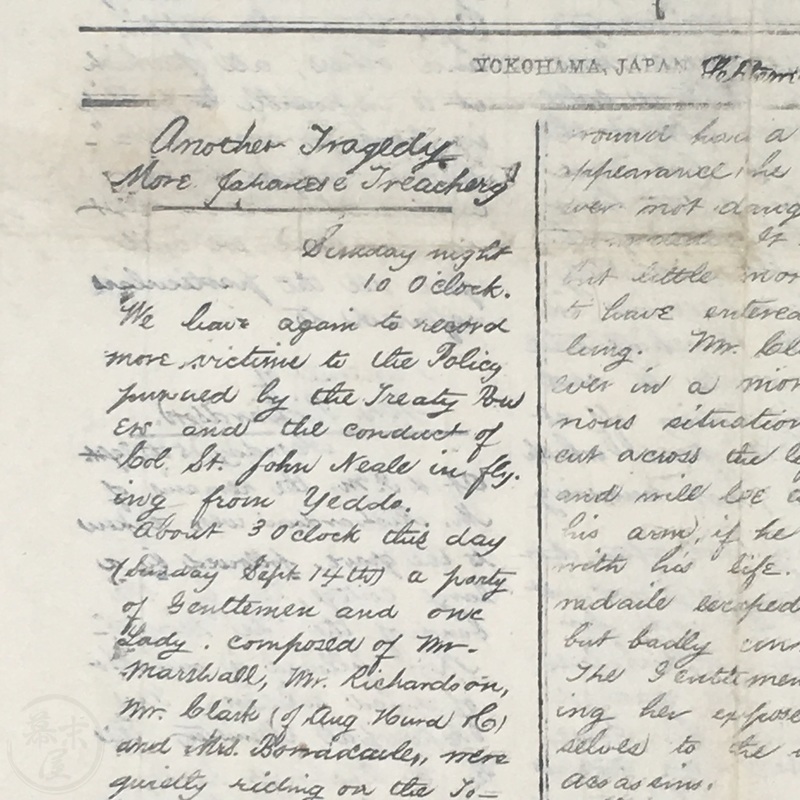 YOKOHAMA, JAPAN
Another Tragedy
More Japanese Treachery
Sunday night
10 O'clock.
We have again to record
more victims to the Policy
pursued by the Treaty Pow
ers and the conduct of
Col. St. John Neale in fly-
ing from Yeddo.
About 3 O'clock this day
(Sunday Sept 14th) a party
of Gentlemen and one
Lady. composed of Mr.
Marshall, Mr. Richardson,
Mr. Clark (of Aug Heard & C)
and Mrs. Borradaile, were
quietly riding on the To-
wound had a
appearance, he
ever not dang
It
but little mor
to have entered
lung. Mr. Cla
ever in a mor
rious situation
cut across the
and will lose
his arm, if he
with his life.
radaile escaped
but badly
The Gentlemen
ing her expose
selves to the
assassins.